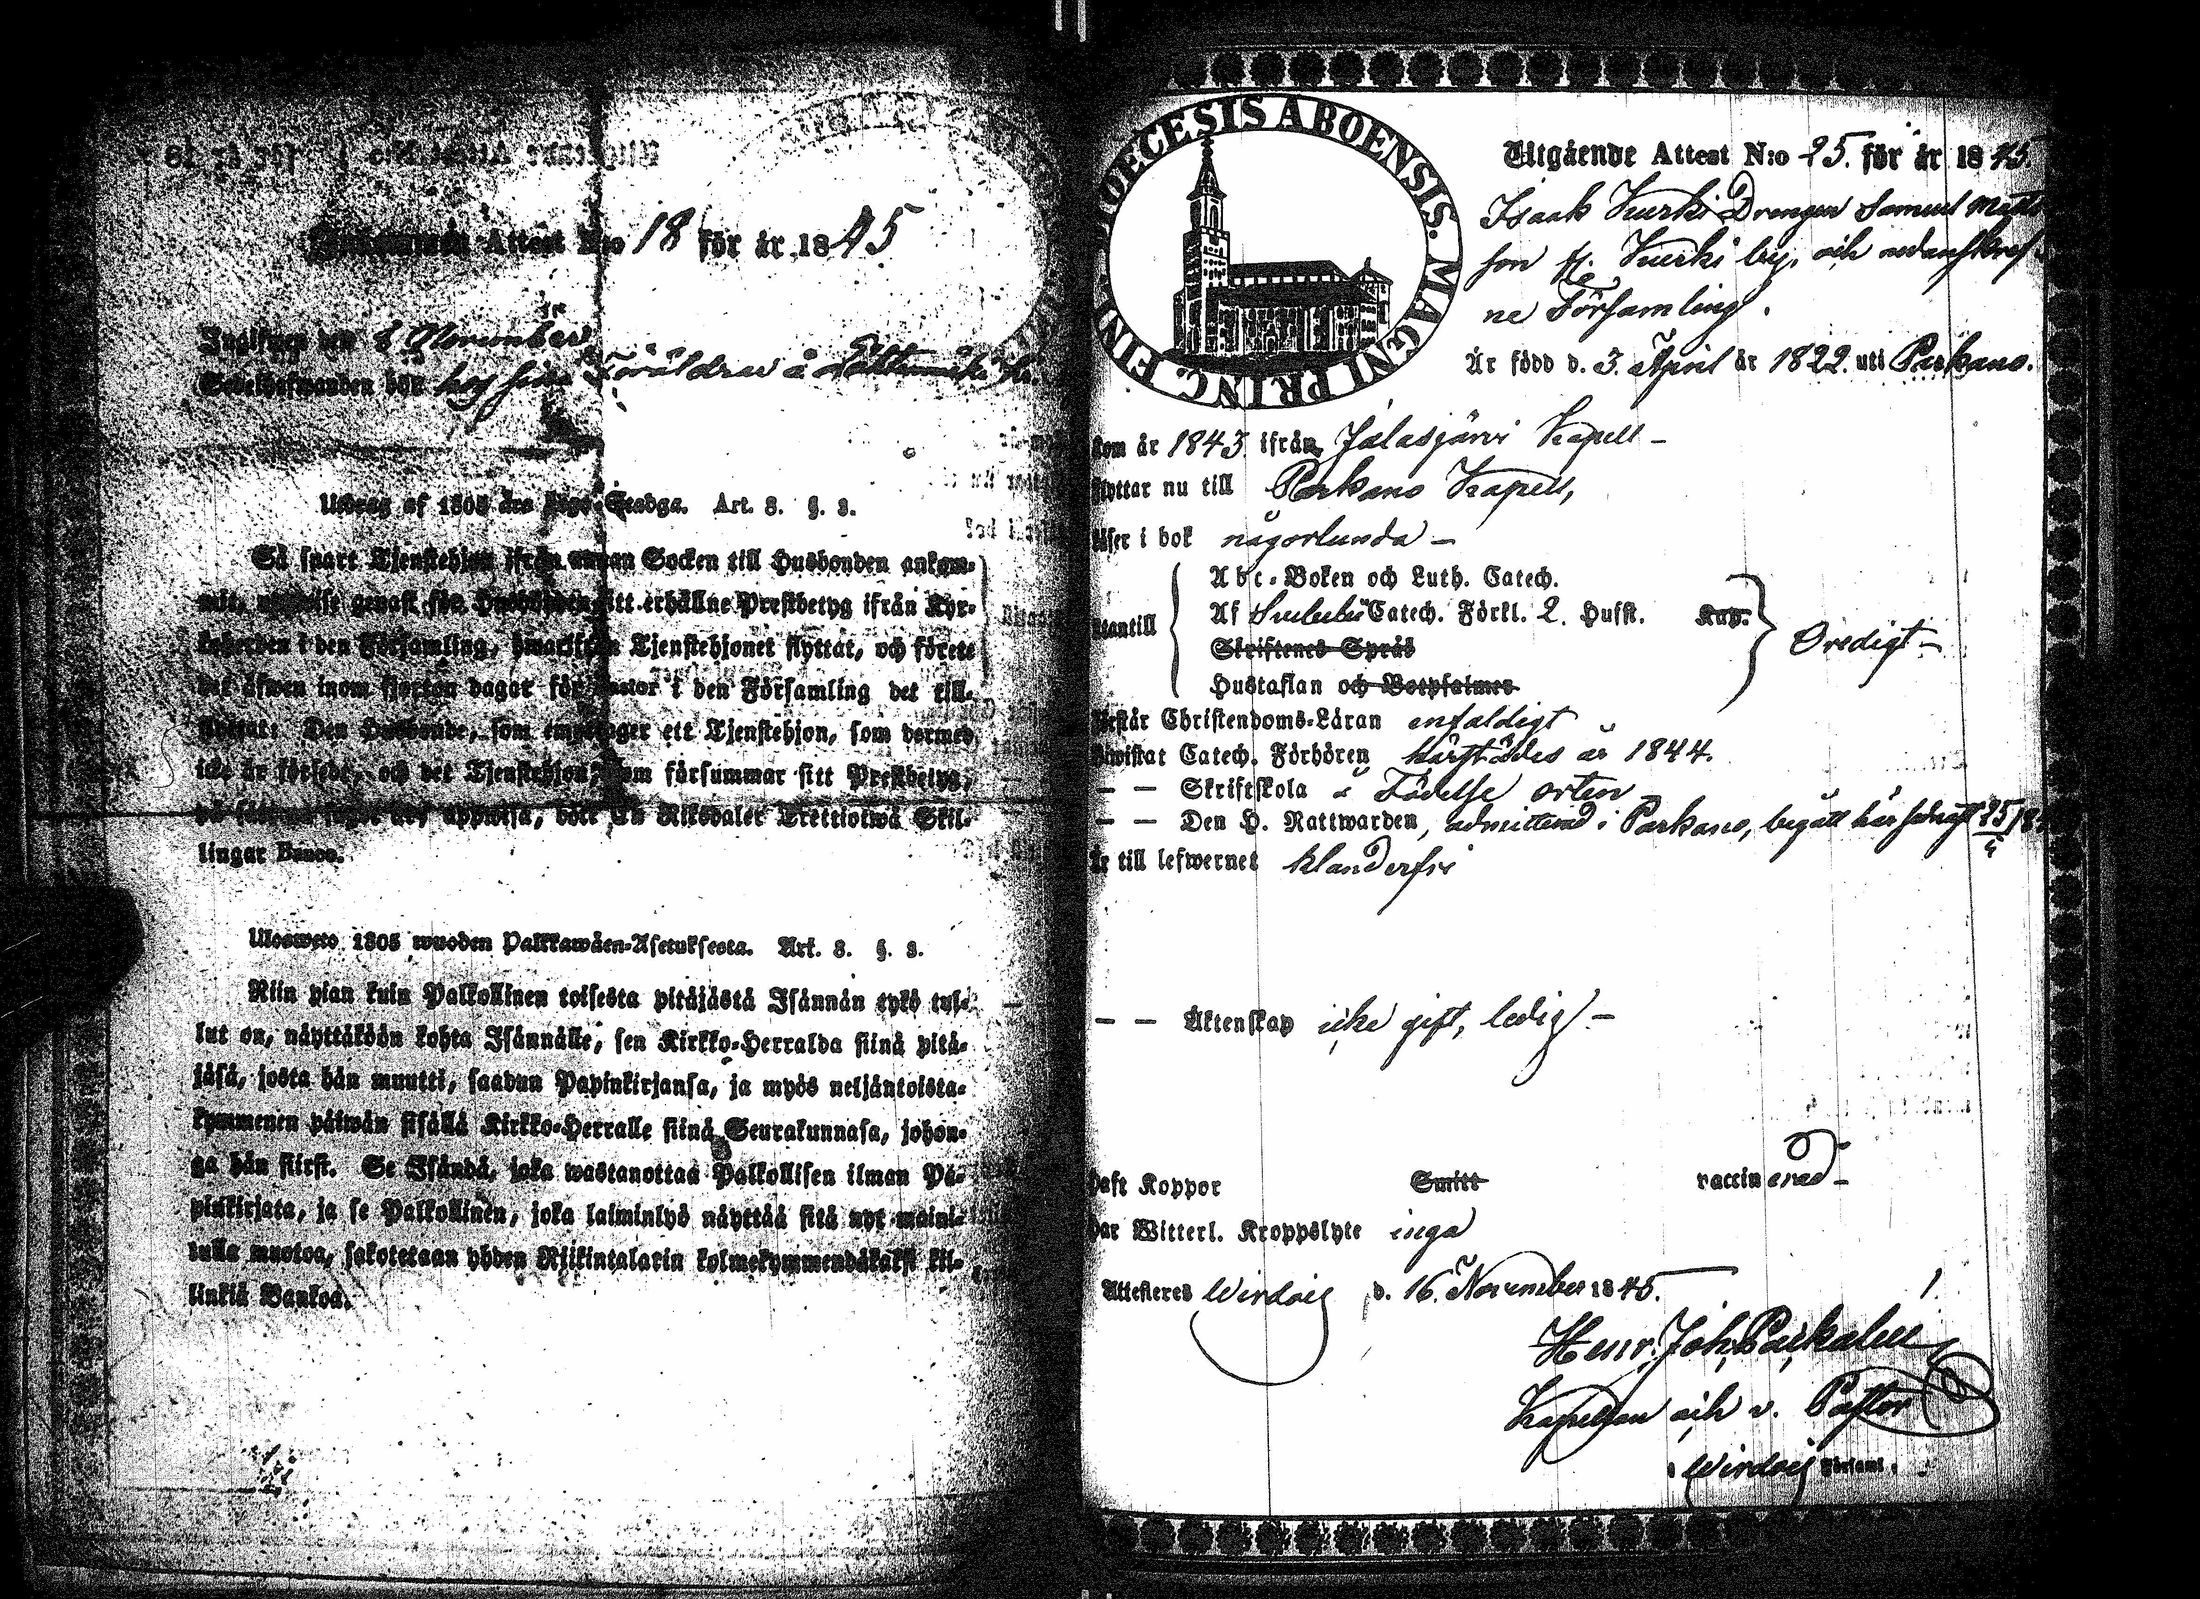 Attest N:o 18 för år 1845
Ingifwen den 8 November
Sedelhafwanden bör hos sina Föräldrar å
Utdrag af 1805 års Lego-Stadga. Art. 8. §. 3.
Så snart Tjenstehjon ifrån annan Socken till Husbonden ankom-
mit, upwise genast för Husbonden sitt erhållne Prestbetyg ifrån Kyr-
koherden i den Församling, hwarifrån Tjenstehjonet flyttat, och förete
det äfwen inom fjorton dagar för Pastor i den Församling det till-
flyttat: Den Husbonde, som emottager ett Tjenstehjon, som dermed
icke är försedt, och det Tjenstehjon, som försummar sitt Prestbetyg,
på sätt nu sagdt är, uppwisa, böte En Riksdaler Trettiotwå Skil-
lingar Banco.
Ulosweto 1805 wuoden Palkkawäen-Asetuksesta. Art. 8. §. 3.
Niin pian kuin Palkollinen toisesta pitäjästä Isännän tykö tul-
lut on, näyttäköön kohta Isännälle, sen Kirkko-Herralda siinä pitä-
jäsä, josta hän muutti, saadun Papinkirjansa, ja myös neljäntoista-
kymmenen päiwän sisällä Kirkko-Herralle siinä Seurakunnasa, johon-
ga hän siirst. Se Isändä, joka wastanottaa Palkollisen ilman Pa-
pinkirjata, ja se Palkollinen, joka laiminlyö näyttää sitä nyt maini-
tulla muotoa, sakotetaan yhden Riikintalarin kolmekymmendäkaksi kil-
linkiä Bankoa.
DIOECESIS ABOENSIS. MAGNI PRINC. FINL.
Utgående Attest N:o 25. för år 1845.
Isaak Kurki Drengen Samuel Matts
son fr. Kurki by, och nedanskref-
ne Församling.
Är född d. 3. April år 1822. uti Parkano.
kom år 1843 ifrån Jalasjärvi Kapell –
flyttar nu till Parkano Kapell,
läser i bok någorlunda –
utantill
Abc-Boken och Luth. Catech.
Af Svebelii Catech. Förkl. 2. Hufst. Kap.
Skriftenes Språk
Hustaflan och Botpsalmer
Oredigt –
förstår Christendoms-Läran enfaldigt
Biwistat Catech. Förhören härstädes år 1844.
– – Skriftskola å Födelse orten
– – Den H. Nattwarden, admitterad i Parkano, begått här sednast 25
är till lefwernet klanderfri
– – Äktenskap icke gift, ledig –
haft Koppor Smitt vaccinerad –
har Witterl. Kroppslyte inga
Attesteras Wirdois d. 16. November 1845.
Henr. Joh. Parkalen
Kapellan och v. Pastor
i Wirdois Församl.